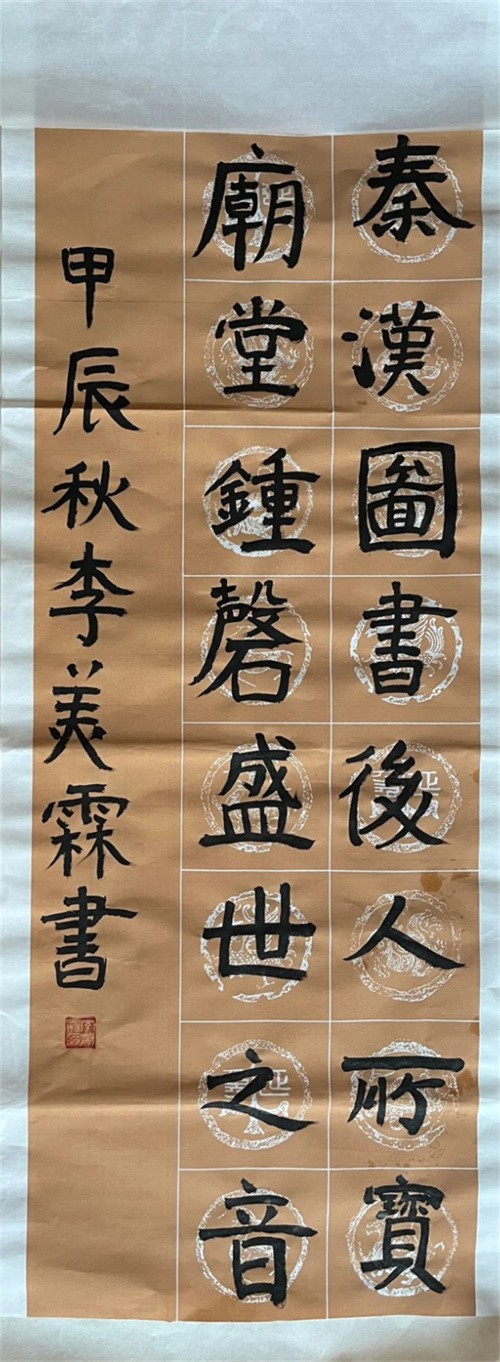 秦漢圖書後人所寶
廟堂鍾磬盛世之音
甲辰秋李美霖書